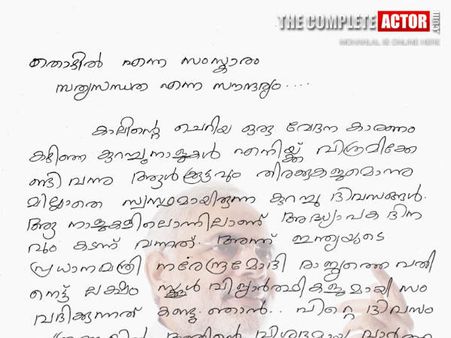 THE COMPLETE ACTOR
MOHANLAL IS ONLINE HERE
തൊഴിൽ എന്ന സംസ്കാരം
സത്യസന്ധത എന്ന സൗന്ദര്യം....
കാലിന്റെ ചെറിയ ഒരു വേദന കാരണം
കഴിഞ്ഞ കുറച്ചുനാളുകൾ എനിയ്ക്ക് വിശ്രമിക്കേ
ണ്ടി വന്നു ആൾക്കൂട്ടവും തിരക്കുകളുമൊന്നു
മില്ലാതെ സ്വസ്ഥമായിരുന്ന കുറച്ചു ദിവസങ്ങൾ.
ആ നാളുകളിലൊന്നിലാണ് അദ്ധ്യാപക ദിന
വും കടന്ന് വന്നത്. അന്ന് ഇന്ത്യയുടെ
പ്രധാനമന്ത്രി നരേന്ദ്രമോദി രാജ്യത്തെ പതി
നെട്ട് ലക്ഷം സ്കൂൾ വിദ്യാർത്ഥികളുമായി സം
വദിക്കുന്നത് കണ്ടു ഞാൻ.. പിറ്റെ ദിവസം